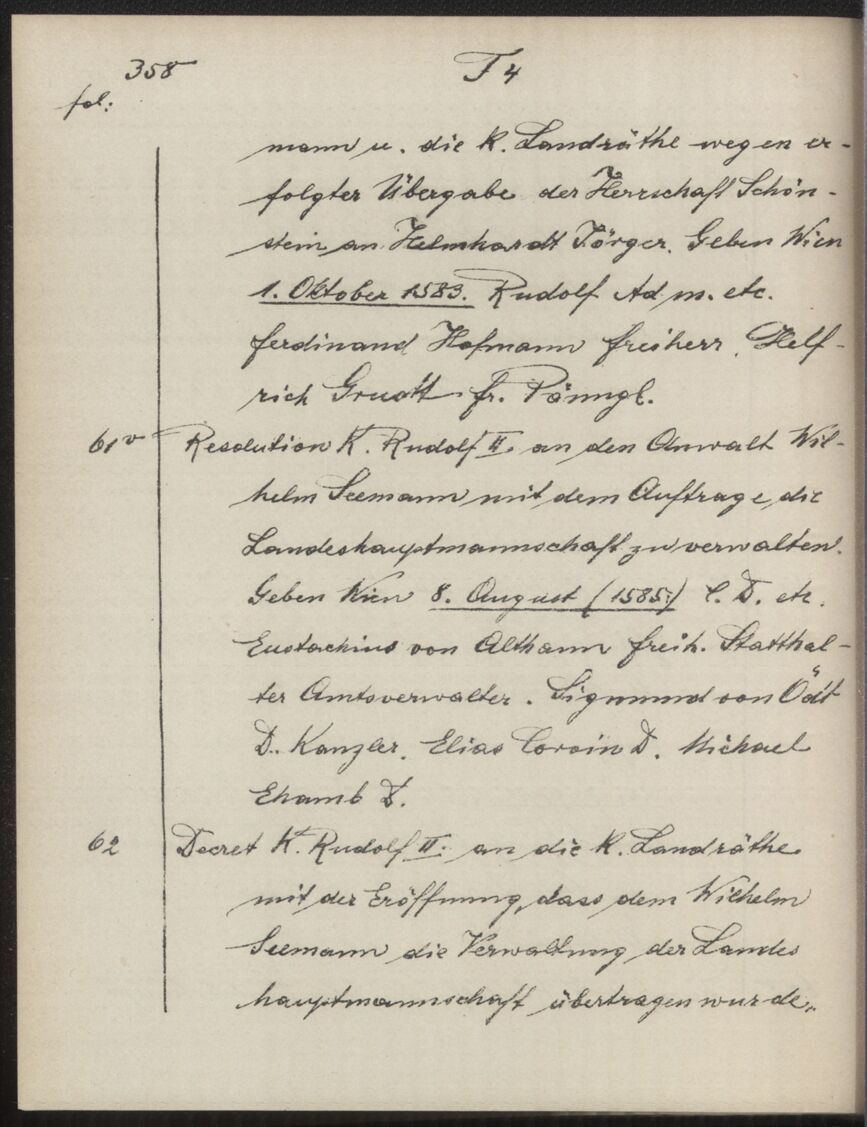 358 T 4
fol:
mann u. die K. Landräthe wegen er-
folgter Übergabe der Herrschaft Schön-
stein an Helmhardt Jörger. Geben Wien
1. Oktober 1583. Rudolf Ad m. etc.
Ferdinand Hofmann freiherr. Helf-
rich Gruott fr. Pönngl.
61v Resolution K. Rudolf II. an den Anwalt Wil-
helm Seemann mit dem Auftrage, die
Landeshauptmannschaft zu verwalten.
Geben Wien 8. August (1585:) C. D. etc.
Eustachius von Althann freih. Statthal-
ter Amtsverwalter. Sigmund von Ödt
D. Kanzler. Elias Corvin D. Michael
Ehamb D.
62 Decret K. Rudolf II. an die K. Landräthe
mit der Eröffnung, dass dem Wilhelm
Seemann die Verwaltung der Landes
hauptmannschaft übertragen wurde.